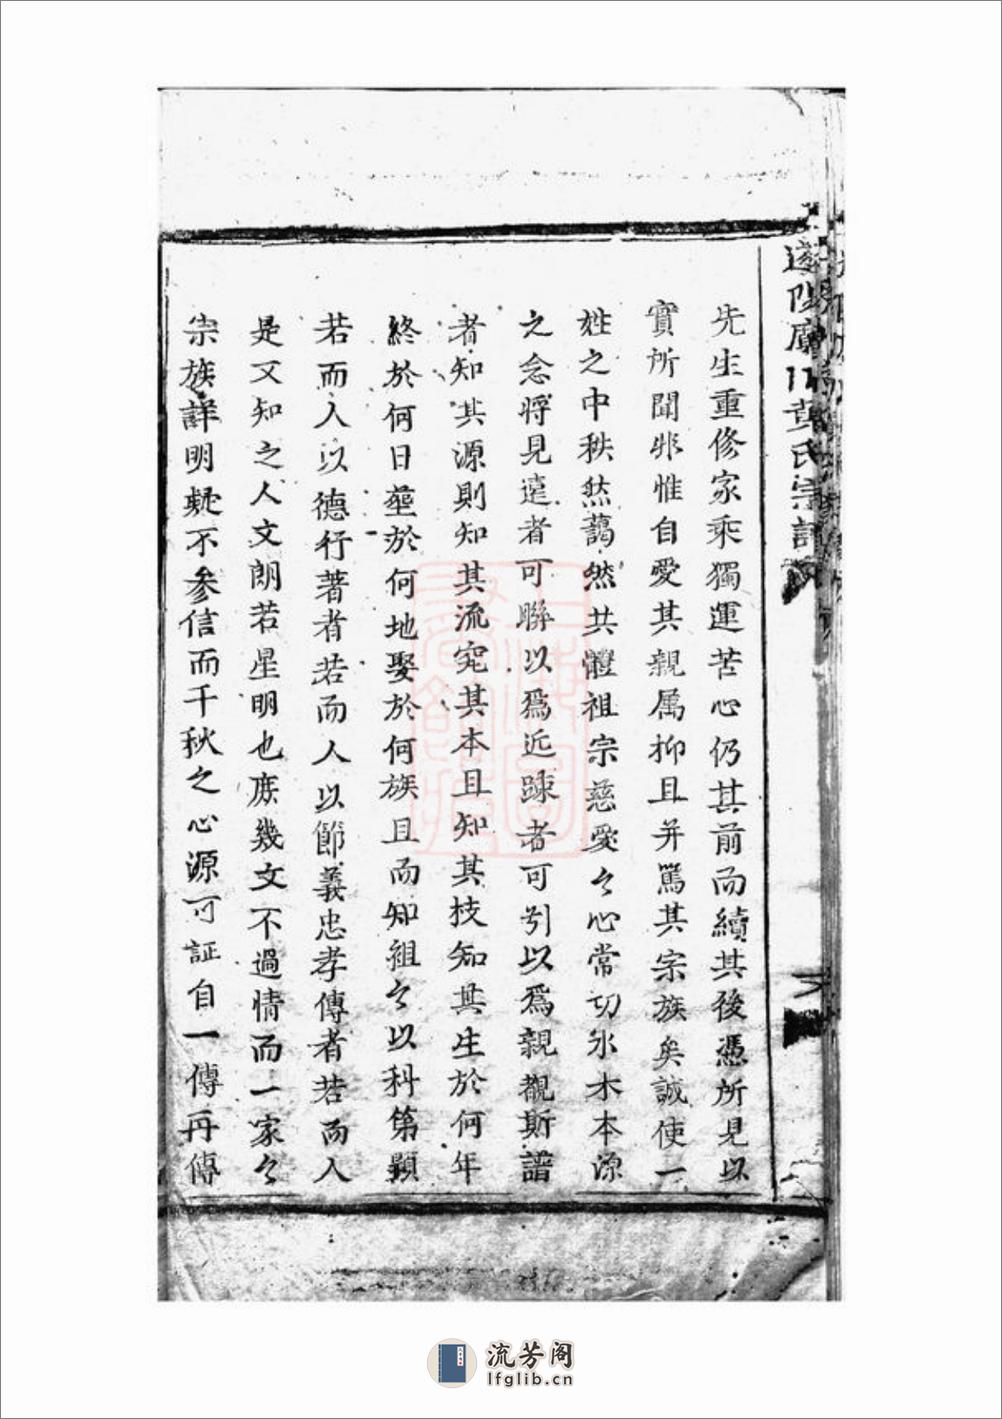 遂陽廓門黃氏宗譜
先生重修家乘獨運苦心仍其前而續其後憑所見以
實所聞非惟自愛其親属抑且并篤其宗族矣誠使一
姓之中秩然藹然共體祖宗慈愛之心常切水木本源
之念將見遠者可聯以爲近踈者可引以爲親觀斯譜
者知其源則知其流究其本且知其枝知其生於何年
終於何日塟於何地娶於何族且而知祖之以科第顯
若而人以德行著者若而人以節義忠孝傳者若而人
是又知之人文朗若星明也庶幾文不過情而一家之
宗族詳明疑不參信而千秋之心源可証自一傳再傳
流芳阁
lfglib.cn